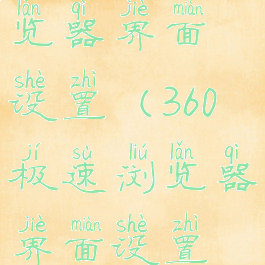 lǎn qì jiè miàn
览器界面
shè zhì
设置(360
jí sù liú lǎn qì
极速浏览器
jiè miàn shè zhì
界面设置